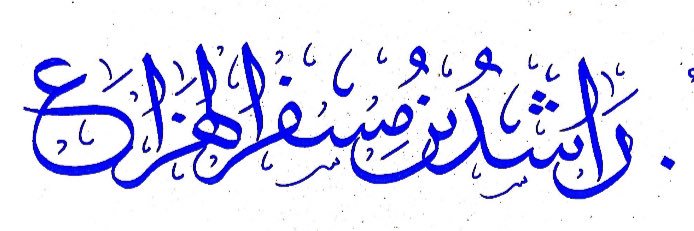 راشد بن مسفر الهزاع